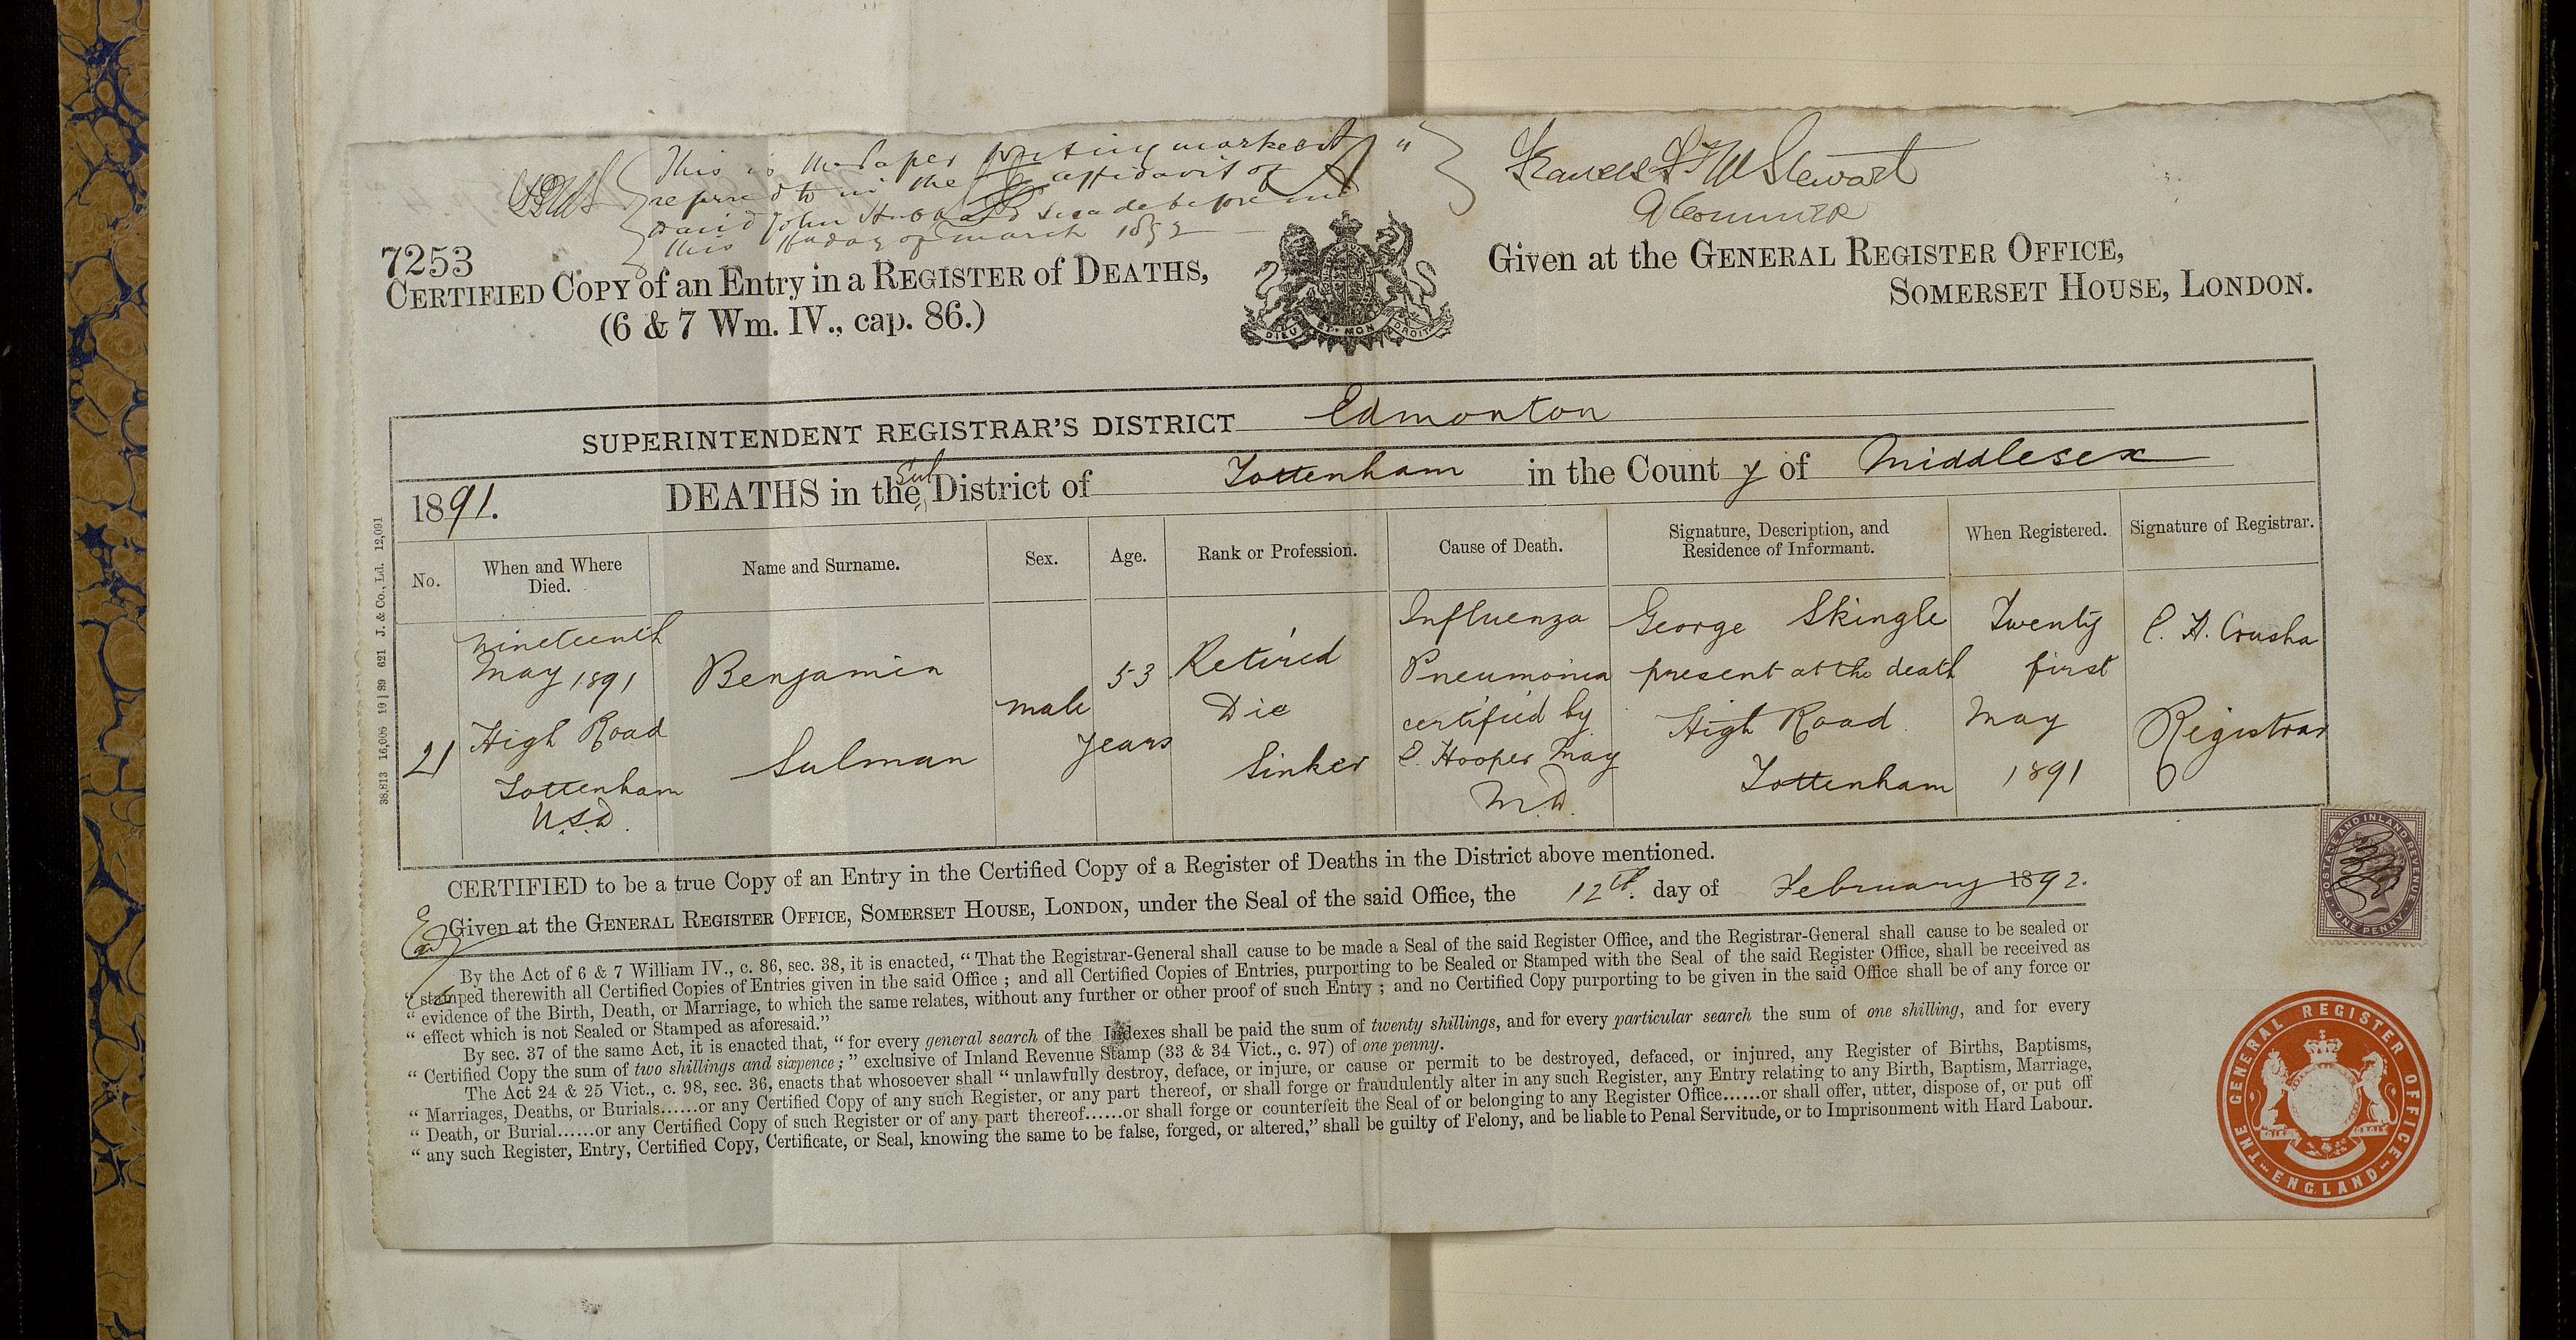 This is the Paper writing marked "A"
referred to in the affidavit of
David John Hubbard made before me
this day of March 1892
A Commr
7253
CERTIFIED COPY of an Entry in a REGISTER of DEATHS,
(6 & 7 Wm. IV., cap. 86.)
DIEU ET MON DROIT
Given at the GENERAL REGISTER OFFICE,
SOMERSET HOUSE, LONDON.
SUPERINTENDENT REGISTRAR'S DISTRICT Edmonton
1891. DEATHS in the Sub District of Tottenham in the County of Middlesex
No.
When and Where
Died.
Name and Surname.
Sex.
Age.
Rank or Profession.
Cause of Death.
Signature, Description, and
Residence of Informant.
When Registered.
Signature of Registrar.
21
Nineteenth
May 1891
High Road
Tottenham
U.S.D.
Benjamin
Sulman
male
53
years
Retired
Die
Sinker
Influenza
Pneumonia
certified by
C. Hooper May
M.D.
George Skingle
present at the death
High Road
Tottenham
Twenty
first
May
1891
C. H. Crusha
Registrar
CERTIFIED to be a true Copy of an Entry in the Certified Copy of a Register of Deaths in the District above mentioned.
Given at the GENERAL REGISTER OFFICE, SOMERSET HOUSE, LONDON, under the Seal of the said Office, the 12th. day of February 1892.
By the Act of 6 & 7 William IV., c. 86, sec. 38, it is enacted, "That the Registrar-General shall cause to be made a Seal of the said Register Office, and the Registrar-General shall cause to be sealed or
"stamped therewith all Certified Copies of Entries given in the said Office; and all Certified Copies of Entries, purporting to be Sealed or Stamped with the Seal of the said Register Office, shall be received as
"evidence of the Birth, Death, or Marriage, to which the same relates, without any further or other proof of such Entry; and no Certified Copy purporting to be given in the said Office shall be of any force or
"effect which is not Sealed or Stamped as aforesaid."
By sec. 37 of the same Act, it is enacted that, "for every general search of the Indexes shall be paid the sum of twenty shillings, and for every particular search the sum of one shilling, and for every
"Certified Copy the sum of two shillings and sixpence;" exclusive of Inland Revenue Stamp (33 & 34 Vict., c. 97) of one penny.
The Act 24 & 25 Vict., c. 98, sec. 36, enacts that whosoever shall "unlawfully destroy, deface, or injure, or cause or permit to be destroyed, defaced, or injured, any Register of Births, Baptisms,
"Marriages, Deaths, or Burials......or any Certified Copy of any such Register, or any part thereof, or shall forge or fraudulently alter in any such Register, any Entry relating to any Birth, Baptism, Marriage,
"Death, or Burial......or any Certified Copy of such Register or of any part thereof......or shall forge or counterfeit the Seal of or belonging to any Register Office......or shall offer, utter, dispose of, or put off
"any such Register, Entry, Certified Copy, Certificate, or Seal, knowing the same to be false, forged, or altered," shall be guilty of Felony, and be liable to Penal Servitude, or to Imprisonment with Hard Labour.
38,813 16,006 10|89 621 J. & Co., Ld. 12,091
POSTAGE AND INLAND REVENUE
ONE PENNY
THE GENERAL REGISTER OFFICE
ENGLAND